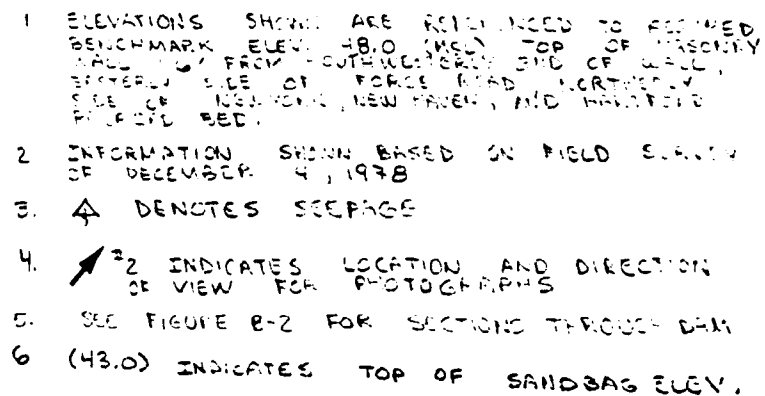 1 ELEVATIONS SHOWN ARE REFERENCED TO ASSUMED
BENCHMARK ELEV. 48.0 (MSL) TOP OF MASONRY
WALL FROM SOUTHWESTERLY END OF WALL,
SIDE OF FORGE ROAD NORTHERLY
SIDE OF NEW YORK, NEW HAVEN, AND HARTFORD
BED.
2 INFORMATION SHOWN BASED ON FIELD SURVEY
OF DECEMBER 4, 1978
3. DENOTES SEEPAGE
4. 2 INDICATES LOCATION AND DIRECTION
OF VIEW FOR PHOTOGRAPHS
5. SEE FIGURE B-2 FOR SECTIONS THROUGH DAM
6 (43.0) INDICATES TOP OF SANDBAG ELEV.